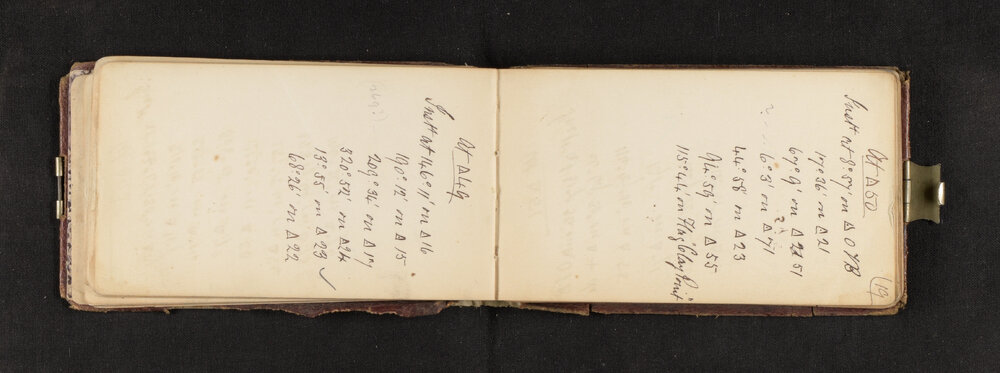 At Δ49
Inst at 146° 11' on Δ 16
190° 12' on Δ 15
209° 34' on Δ 17
320° 52' on Δ24
13° 55' on Δ 23 ✓
68° 26' on Δ 22
(19
At Δ50
Inst at 8° 57' on Δ O YB
17° 36' on Δ 21
67° 9' on Δ 51
6° 31' on Δ
44° 58' on Δ 23
94° 59' on Δ 55
115° 44' on Flag "Clay Point"